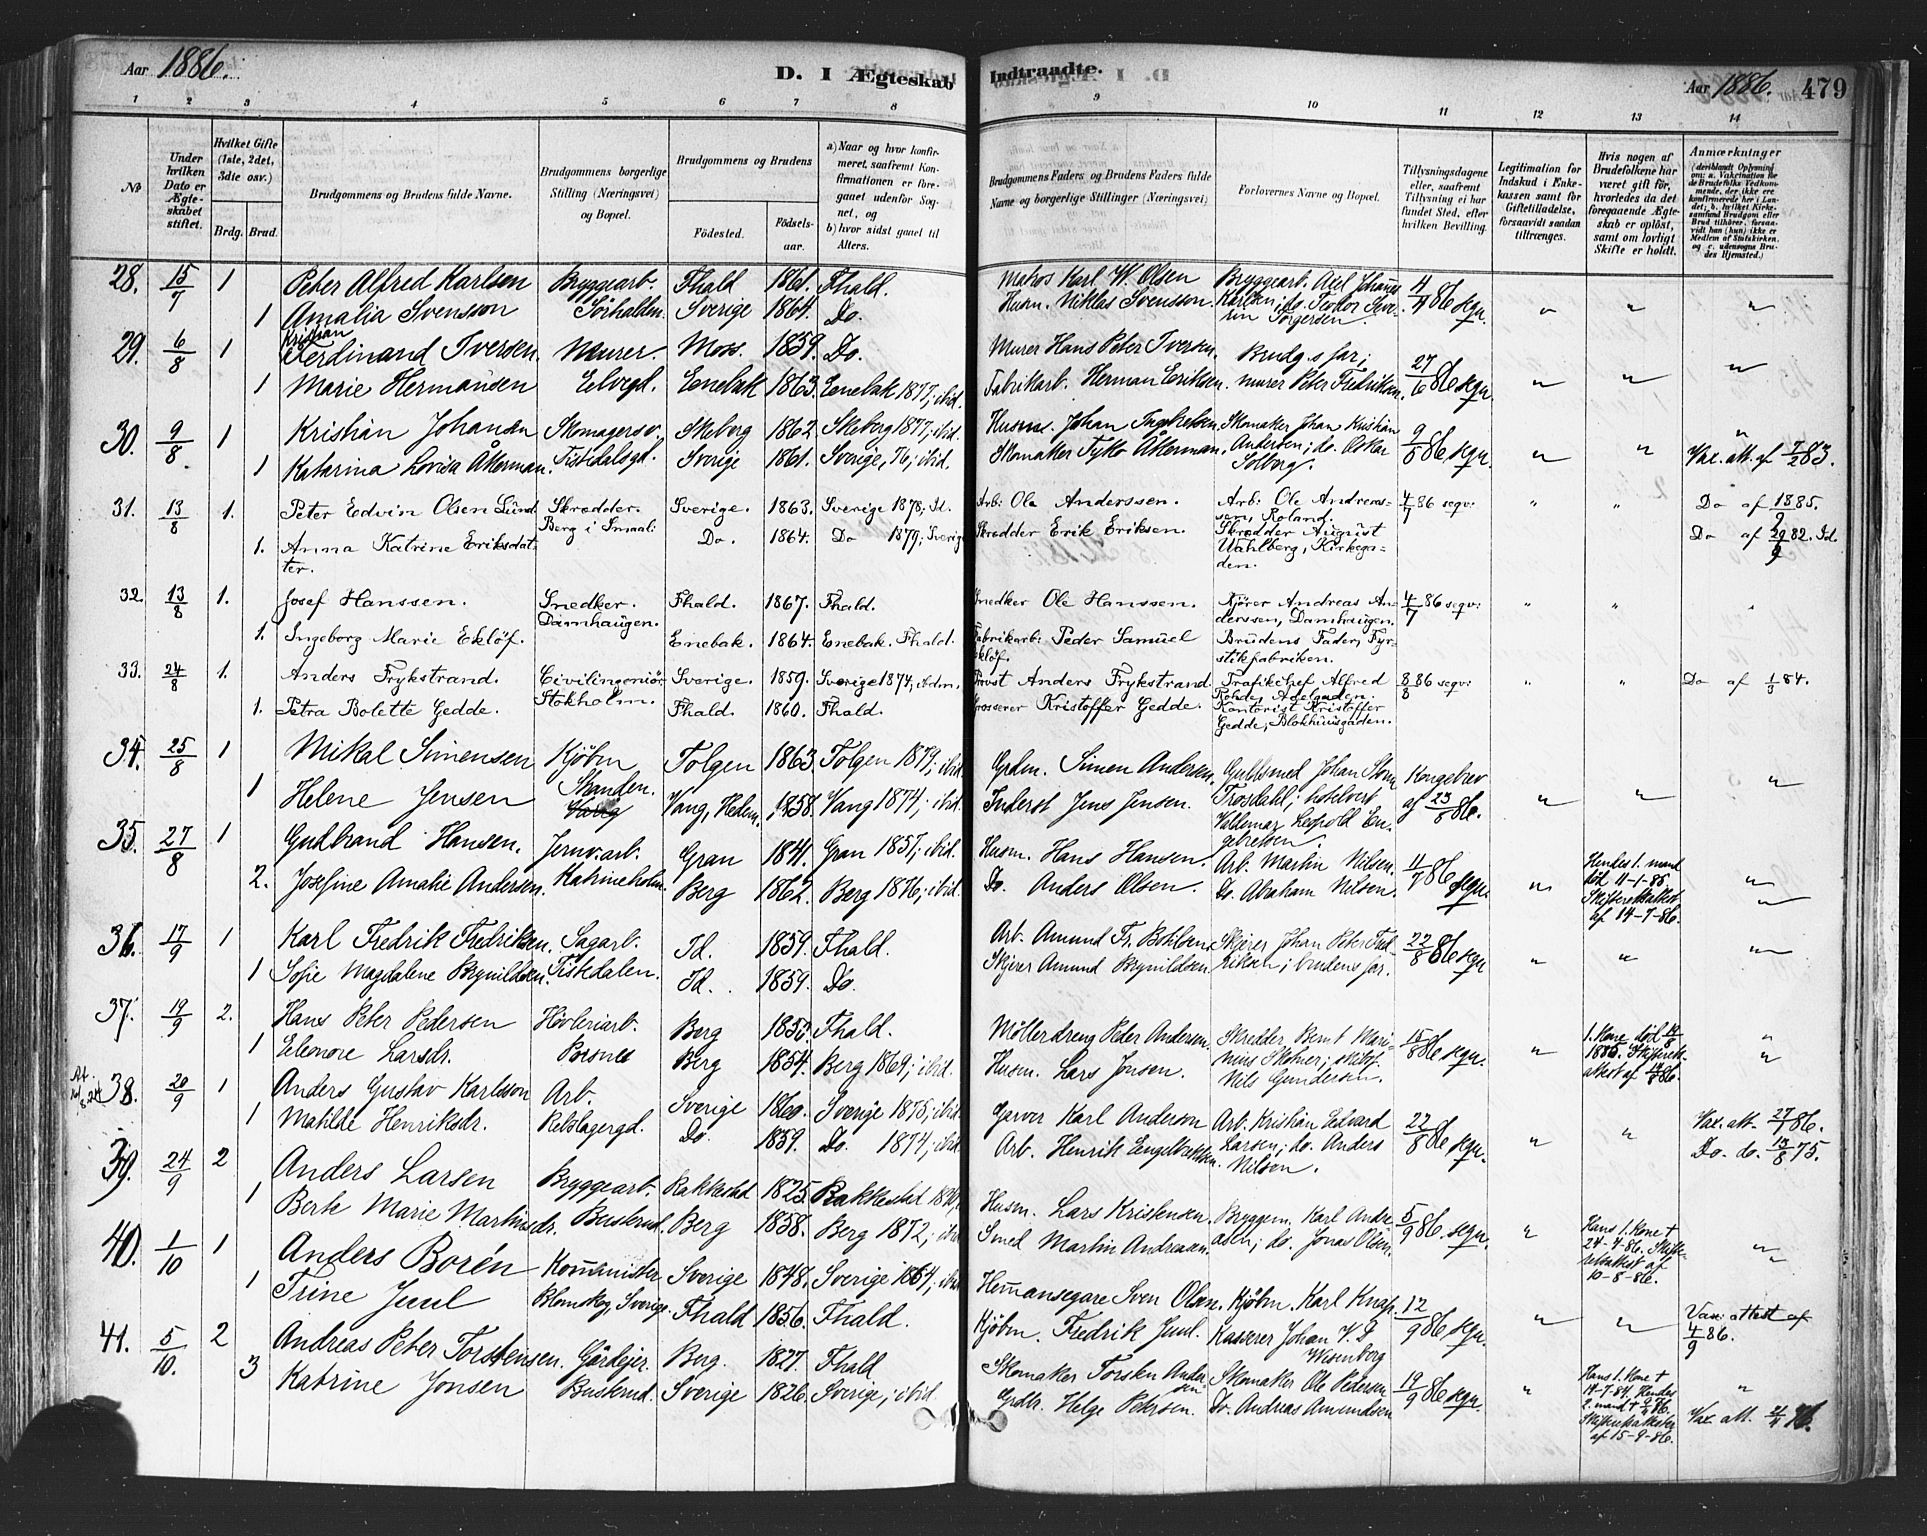 Aar 1886.
D. I Ægteskab Indtraadte.
Aar 1886. 479
1 2 3 4 5 6 7 8 9 10 11 12 13 14
No
Under hvilken Dato er Ægteskabet stiftet.
Hvilket Gifte (1ste, 2det, 3die osv.)
Brdg. Brud.
Brudgommens og Brudens fulde Navne.
Brudgommens borgerlige Stilling (Næringsvei) og Bopæl.
Brudgommens og Brudens
Fødested. Fødselsaar.
a) Naar og hvor konfirmeret, saafremt Konfirmationen er foregaaet udenfor Sognet, og
b) hvor sidst gaaet til Alters.
Brudgommens Faders og Brudens Faders fulde Navne og borgerlige Stillinger (Næringsvei)
Forlovernes Navne og Bopæl.
Tillysningsdagene eller, saafremt Tillysning ei har fundet Sted, efter hvilken Bevilling.
Legitimation for Indskud i Enkekassen samt for Giftetilladelse, forsaavidt saadan tiltrænges.
Hvis nogen af Brudefolkene har været gift før, hvorledes da det foregaaende Ægteskab er opløst, samt om lovligt Skifte er holdt.
Anmærkninger
28. 15/7 1 Peter Alfred Karlsen Bryggearb. Fhald 1861. Fhald. Matros Karl W. Olsen Bryggearb. Axel Johannes 4/7 86 sequ. " " "
1 Amalia Svensson Sörhalden Sverige 1864. Do. Husm. Niklas Svensson. Karlsen; do. Teodor Severin Torgersen.
29. 6/8 1 Kristian Ferdinand Iversen. Murer. Moss. 1859. Do. Murer Hans Peter Iversen. Brudg.s far; 27/6 86 sequ. " " "
1 Marie Hermansen Elvegd. Enebak 1863. Enebak 1877; ibid. Fabrikarb. Herman Eriksen. murer Peter Fredriksen.
30. 9/8 1 Kristian Johansen Skomagersv. Skeberg 1862. Skeberg 1877; ibid. Husm. Johan Skomaker Johan Kristian 86 sequ. " " "
1 Katarina Lovisa Åkerman. Tistedalsgd. Sverige 1861. Sverige, 76; ibid. Skomaker Åkerman. Andersen; do. Oskar Solberg. Vax. att. af 7/2 83.
31. 13/8 1. Peter Edvin Olsen Lund Skrædder. Sverige. 1863. Sverige 1878, Id. Arb: Ole Anderssen. Arb: Ole Andreassen, Roland. 4/7 86 seqv: " " Do af 1885.
1. Anna Katrine Eriksdatter. Berg i Smaal: Do. 1864. Do 1879; Sverige Skrædder Erik Eriksen. Skrædder August Wahlberg, Kirkegaden. Do af 29/9 82. Id.
32. 13/8 1. Josef Hanssen. Snedker. Fhald. 1867. Fhald. Snedker Ole Hanssen. Kjører Andreas Anderssen, Damhaugen. 4/7 86 seqv: " " "
1. Ingeborg Marie Eklöf. Damhaugen. Enebak. 1864. Enebak. Fhald. Fabrikarb: Peder Samuel Eklöf. Brudens Fader, Fyrstikfabriken.
33. 24/8 1. Anders Frykstrand. Civilingeniör Sverige. 1859. Sverige 1874; ibdm. Provst Anders Frykstrand. Trafikchef Alfred Rohde, Adelgaden. 8/8 86 seqv: " " Do af 1/3 84.
1. Petra Bolette Gedde. Stokholm. Fhald. 1860. Fhald. Grosserer Kristoffer Gedde. Kontorist Kristoffer Gedde, Blokhuusgaden.
34. 25/8 1 Mikal Simensen Kjöbm Tolgen 1863. Tolgen 1879; ibid Grdm. Simen Andersen. Guldsmed Johan Trosdahl; hotelvert Kongebrev " " "
1 Helene Jensen Skanden. Vang, Hedem. 1858. Vang 1874; ibid. Inderst Jens Jensen. Valdemar Leopold Engebretsen. af 23/8 86.
35. 27/8 1 Gudbrand Hansen. Jernv.arb. Gran 1841. Gran 1857; ibid. Husm. Hans Hansen. Arb. Martin Nilsen. 11/7 86 sequ. " Hendes 1. mand död 11-1-86. Skifteretsattest af 14-7-86. "
2. Josefine Amalie Andersen. Katrineholm. Berg 1862. Berg 1876; ibid. Do. Anders Olsen. Do. Abraham Nilsen. "
36. 17/9 1 Karl Fredrik Fredriksen. Sagarb. Id. 1859. Fhald. Arb. Amund Fr. Skjærer Johan Peter Fredriksen; brudens far. 22/8 86 sequ " " "
1 Sofie Magdalene Brynildsen. Tistedalen. Id. 1859. Do. Skjærer Amund Brynildsen.
37. 19/9 2. Hans Peter Pedersen Hövleriarb. Berg 1853. Fhald. Möllerdreng Peter Andersen. Skredder Bernt Marinius 15/8 86 sequ. " 1. Kone död 1885. Skifteretsattest af "
1 Eleonore Larsdr. Berg 1854. Berg 1869; ibid. Husm. Lars Jonsen. Nils Gundersen. "
38. 20/9 1 Anders Gustav Karlsson Arb. Sverige 1860. Sverige 1875; ibid Garver Karl Anderson Arb. Kristian Edvard 22/8 86 sequ. " " Vax. att. 27/7 86.
1 Matilde Henriksdr. Rebslagergd. Do. 1859. Do. 1874; ibid Arb. Henrik Larsen; do. Anders Nilsen. Do. do. 13/8 75.
39. 24/9 2 Anders Larsen Bryggearb. Rakkestad 1825. Rakkestad Husm. Lars Kristensen. Bryggem. Karl Andreasen; do. Jonas Olsen. 5/9 86. sequ. " Hans 1. Kone † 24-4-86. Skifteretsattest af 10-8-86. "
1 Berte Marie Martinsdr. Buskrud. Berg 1858. Berg 1872; ibid Smed Martin Andreasen. "
40. 1/10 1 Anders Borén Kommunister Sverige 1848. Sverige 1864; ibid Hemmansegare Sven Olsen. Kjöbm. Karl Knap. 12/9 86 sequ. " " Vax. attest af 4/9 86.
1 Trine Juul Blomskog, Sverige. Fhald 1856. Fhald. Kjöbm. Fredrik Juul. Kasserer Johan Wisenberg
41. 5/10. 2 Andreas Peter Torstensen. Gårdejer Berg. 1827. Fhald Skomaker Torsten Andersen Skomaker Ole Pedersen 19/9 86 sequ. " Hans 1. Kone † 14-7-84. Hendes 2. mand † Skifteretsattester af 15-9-86. "
3 Katrine Jonsen Buskrud. Sverige 1826. Sverige; ibid. Grdbr. Helge Petersen. Do. Andreas Amundsen Vax. att. 76.